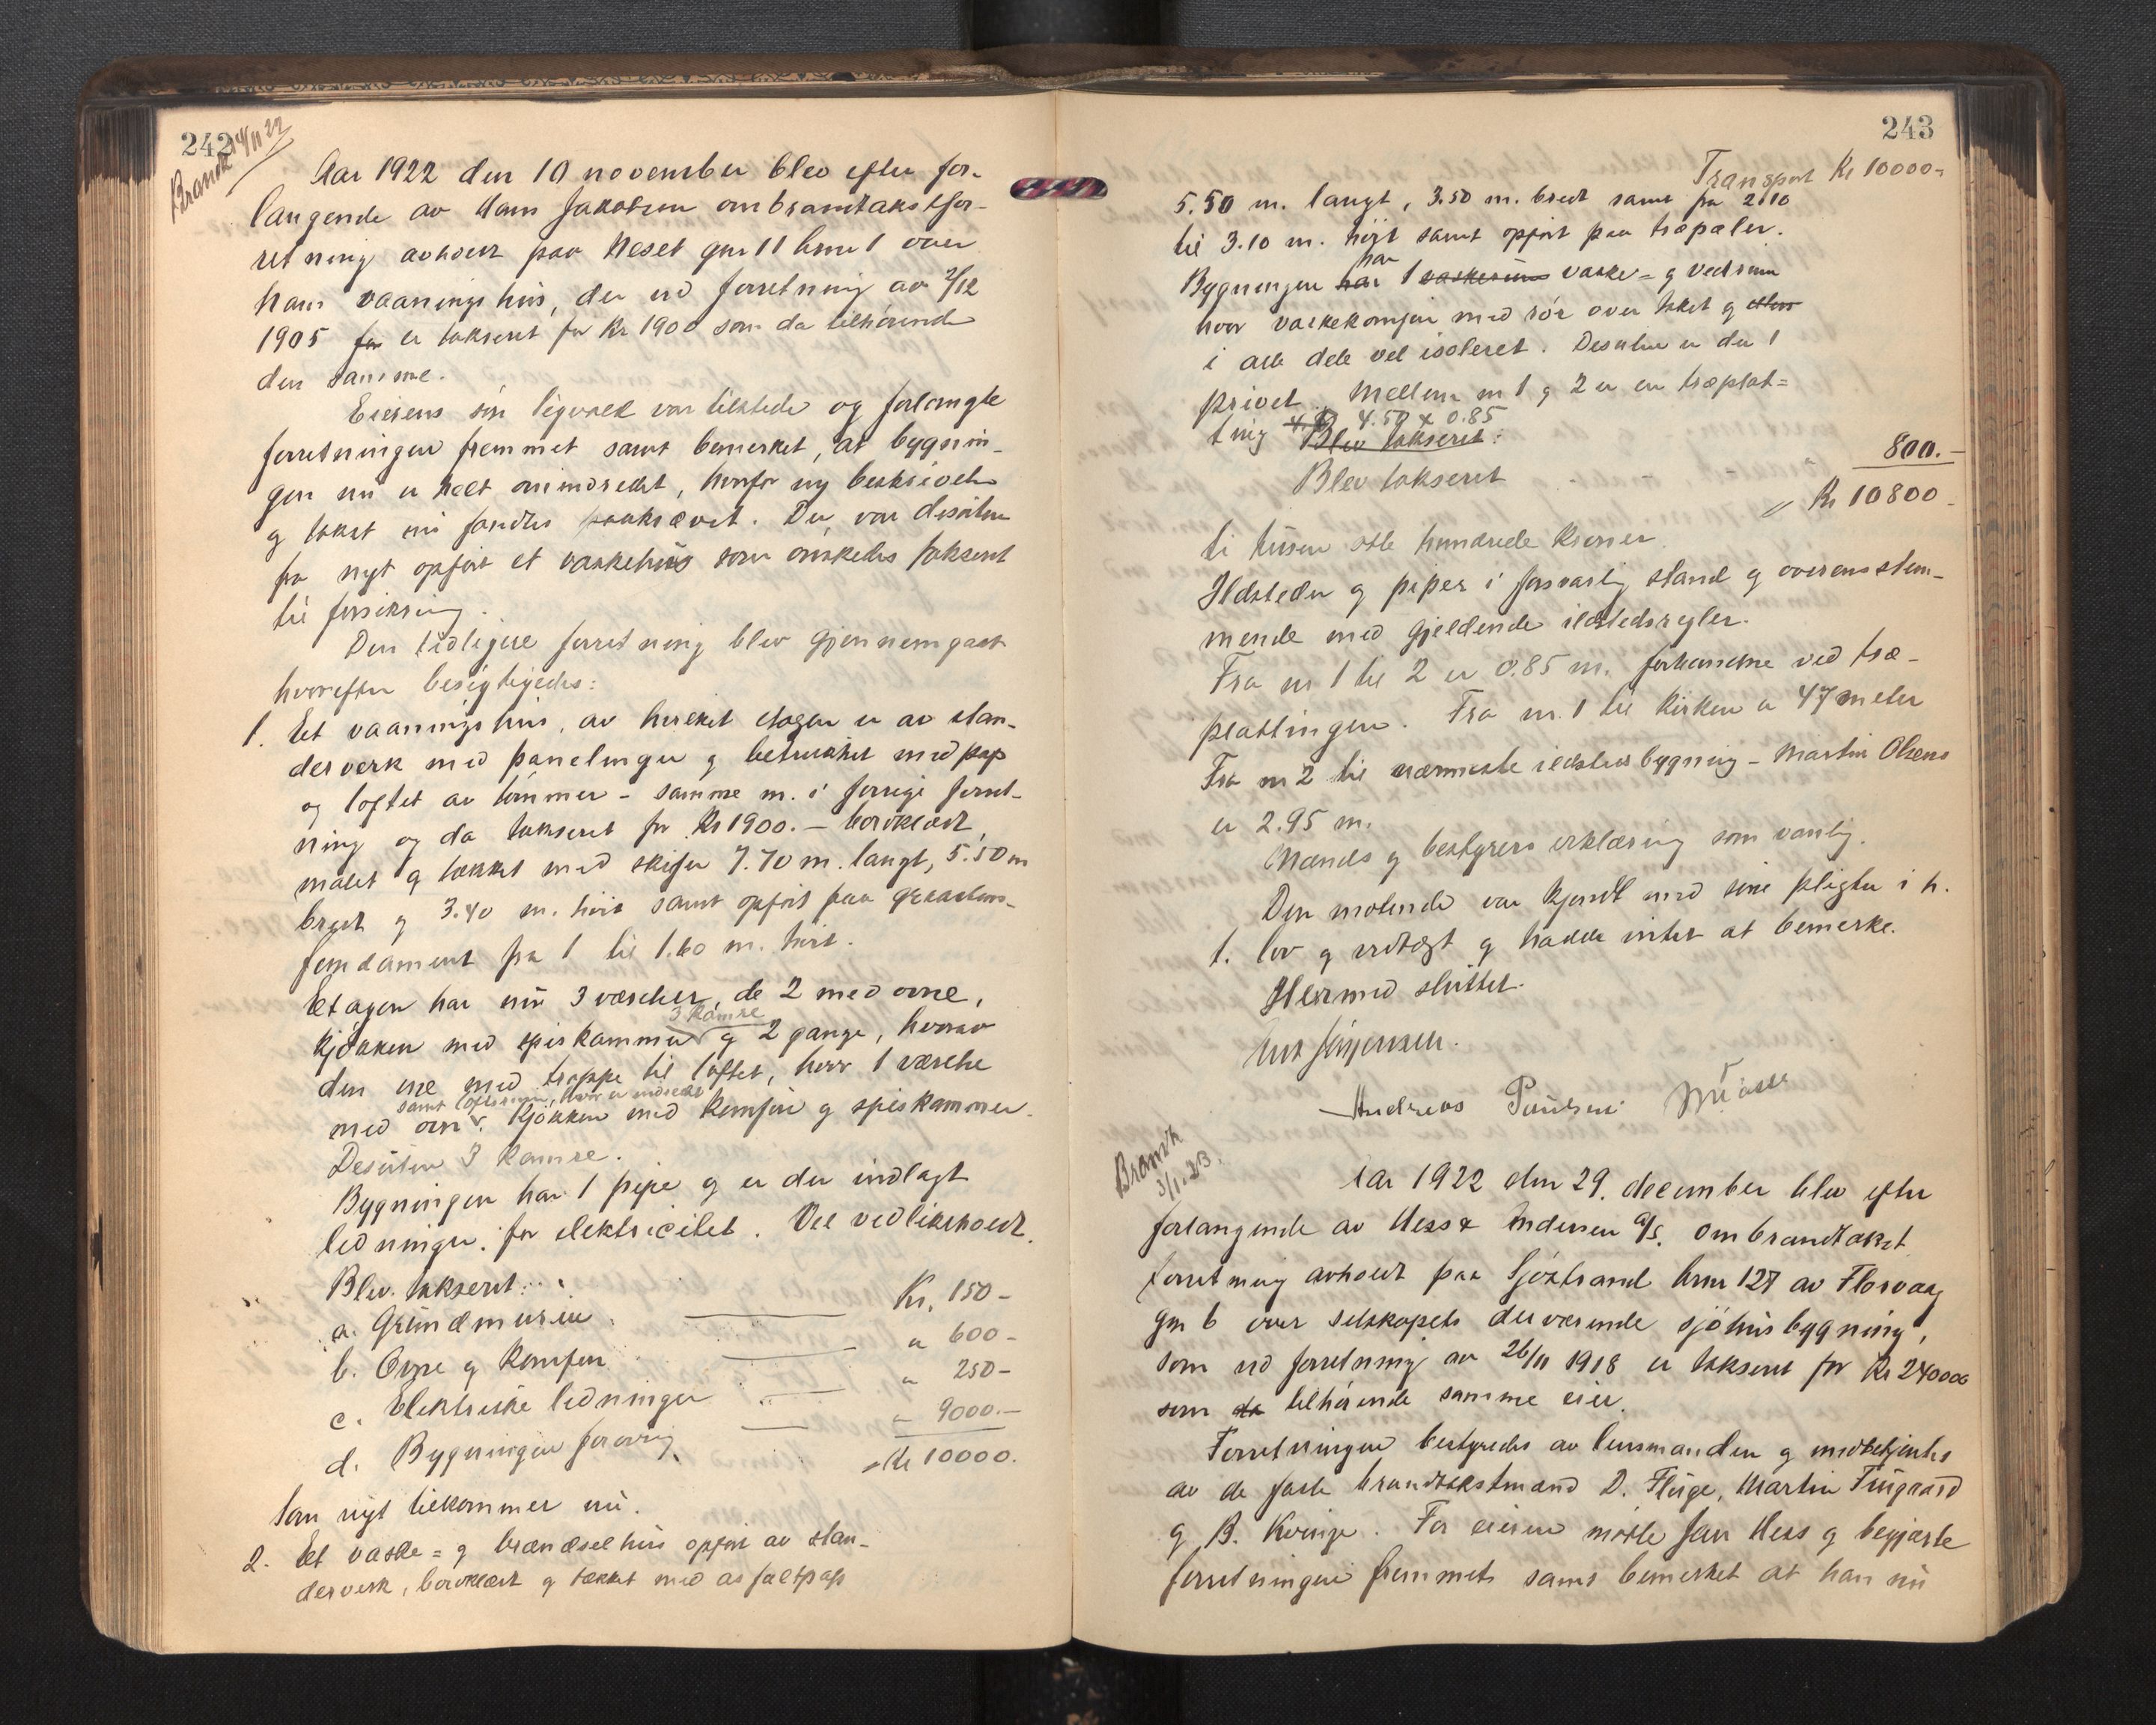 242
Brandt 14/11 22
Aar 1922 den 10 november blev efter for-
langende av Hans Jakobsen ombrandtakstfor-
retning avholdt paa Neset gnr 11 brnr 1 over
hans vaaningshus, der ved forretning av 2/12
1905 for er takseret for Kr 1900 som da tilhørende
den samme.
Eierens søn Sigvald var tilstede og forlangte
forretningen fremmet samt bemerket, at bygnin-
gen nu er helt omindredt, hvorfor ny beskrivelse
g takst nu fandtes paakrævet. Der var desuten
fra nyt opført et vaskehus som ønskedes takseret
til forsikring.
Den tidligere forretning blev gjennemgaat
hvorefter besigtigedes:
1. Et vaaningshus, av hvilket etagen er av stan-
derverk med panelinger g betrukket med pap
og loftet av tømmer - samme nr. i forrige forret-
ning og da takseret for Kr 1900.- bordklædt,
malet g tækket med skifer 7.70 m. langt, 5.50 m
bredt g 3.40 m. høit samt opført paa graastens-
fundament fra 1 til 1.60 m. høit.
Etagen har nu 3 værelser, de 2 med ovne,
3 kamre
kjøkken med spiskammer g 2 gange, hvorav
den ene med trappe til loftet, hvor 1 værelse
samt loftsrum, hvor er indredt
med ovn. Kjøkken med komfur g spiskammer.
Desuten 3 kamre.
Bygningen har 1 pipe g er der indlagt
ledninger for elektricitet. Vel vedlikeholdt.
Blev takseret:
a. Grundmuren Kr. 150-
b. Ovne g komfur " 600-
c. Elektriske ledninger " 250-
d. Bygningen forøvrig " 9000.-
Kr 10000.
Som nyt tilkommer nu.
2. Et vaske= g brændselhus opført av stan-
derverk, bordklædt g tækket med asfaltpap
243
Transport Kr 10000-
5.50 m. langt, 3.50 m. bredt samt fra 2.10
til 3.10 m. høit samt opført paa træpæler.
har
Bygningen har 1 vaskerum vaske= g vedrum
hvor vaskekomfur med rør over taket g ellers
i alle dele vel isoleret. Desuten er der 1
privet. Mellem nr 1 g 2 er en træplat=
4.50 x 0.85
ting Blev takseret:
Blev takseret 800.-
Kr 10800-
ti tusen otte hundrede kroner.
Ildsteder g piper i forsvarlig stand g overensstem-
mende med gjeldende ildstedsregler.
Fra nr 1 til 2 er 0.85 m. forbundne ved træ-
plattingen. Fra nr. 1 til Kirken er 47 meter
Fra nr 2 til nærmeste ildstedsbygning - Martin Olsens
er 2.95 m.
Mænds g bestyrers erklæring som vanlig.
Den møtende var kjendt med sine pligter i h.
t. lov g vedtægt g hadde intet at bemerke.
Hermed sluttet.
Ant Jørgensen.
Andreas Paulsen
Brandt
3/1.23.
Aar 1922 den 29. december blev efter
forlangende av Hess & Andersen a/s. ombrandtakst
forretning avholdt paa Sjøstrand brnr 127 av Florvaag
gnr 6 over selskapets derværende sjøhusbygning,
som ved forretning av 26/11 1918 er takseret for Kr 24000
som da tilhørende samme eier.
Forretningen bestyredes av lensmanden g medbetjentes
av de faste brandtakstmænd D. Fluge, Martin Tuggaard
g B. Kvinge. For eieren møtte Jan Hess g begjærte
forretningen fremmet samt bemerket at han nu